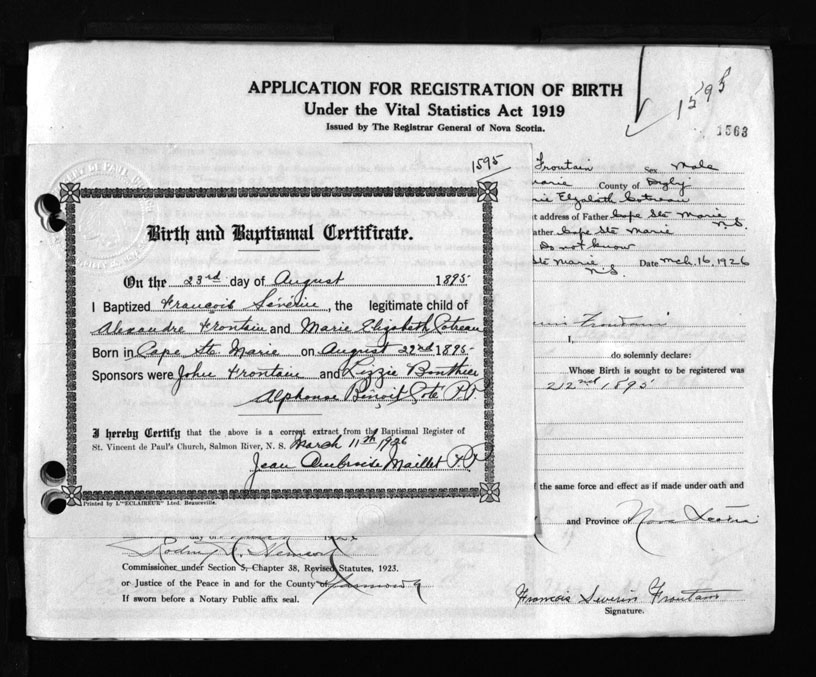 APPLICATION FOR REGISTRATION OF BIRTH
Under the Vital Statistics Act 1919
Issued by The Registrar General of Nova Scotia.
1595
1563
Frontain Sex Male
Marie County of Digby
Marie Elizabeth Cotreau
t address of Father Cape Ste Marie N.S.
ather Cape Ste Marie
Do not know
Ste Marie N.S. Date Mch. 16, 1926
I,
do solemnly declare:
Whose Birth is sought to be registered was
22nd 1895
f the same force and effect as if made under oath and
and Province of Nova Scotia
Francois Severin Frontain
Signature.
1595
Birth and Baptismal Certificate.
On the 23rd day of August 1895
I Baptized François Séverin, the legitimate child of
Alexandre Frontain and Marie Elizabeth Cotreau
Born in Cape Ste Marie on August 22nd 1895
Sponsors were John Frontain and Lizzie Bonthier
Alphonse Benoit Cote P.P.
I hereby Certify that the above is a correct extract from the Baptismal Register of
St. Vincent de Paul's Church, Salmon River, N. S. March 11th 1926
Jean Ambroise Maillet P.P.
Printed by L'"ECLAIREUR" Ltd. Beauceville.
day of
Commissioner under Section 5, Chapter 38, Revised Statutes, 1923.
or Justice of the Peace in and for the County of Yarmouth
If sworn before a Notary Public affix seal.